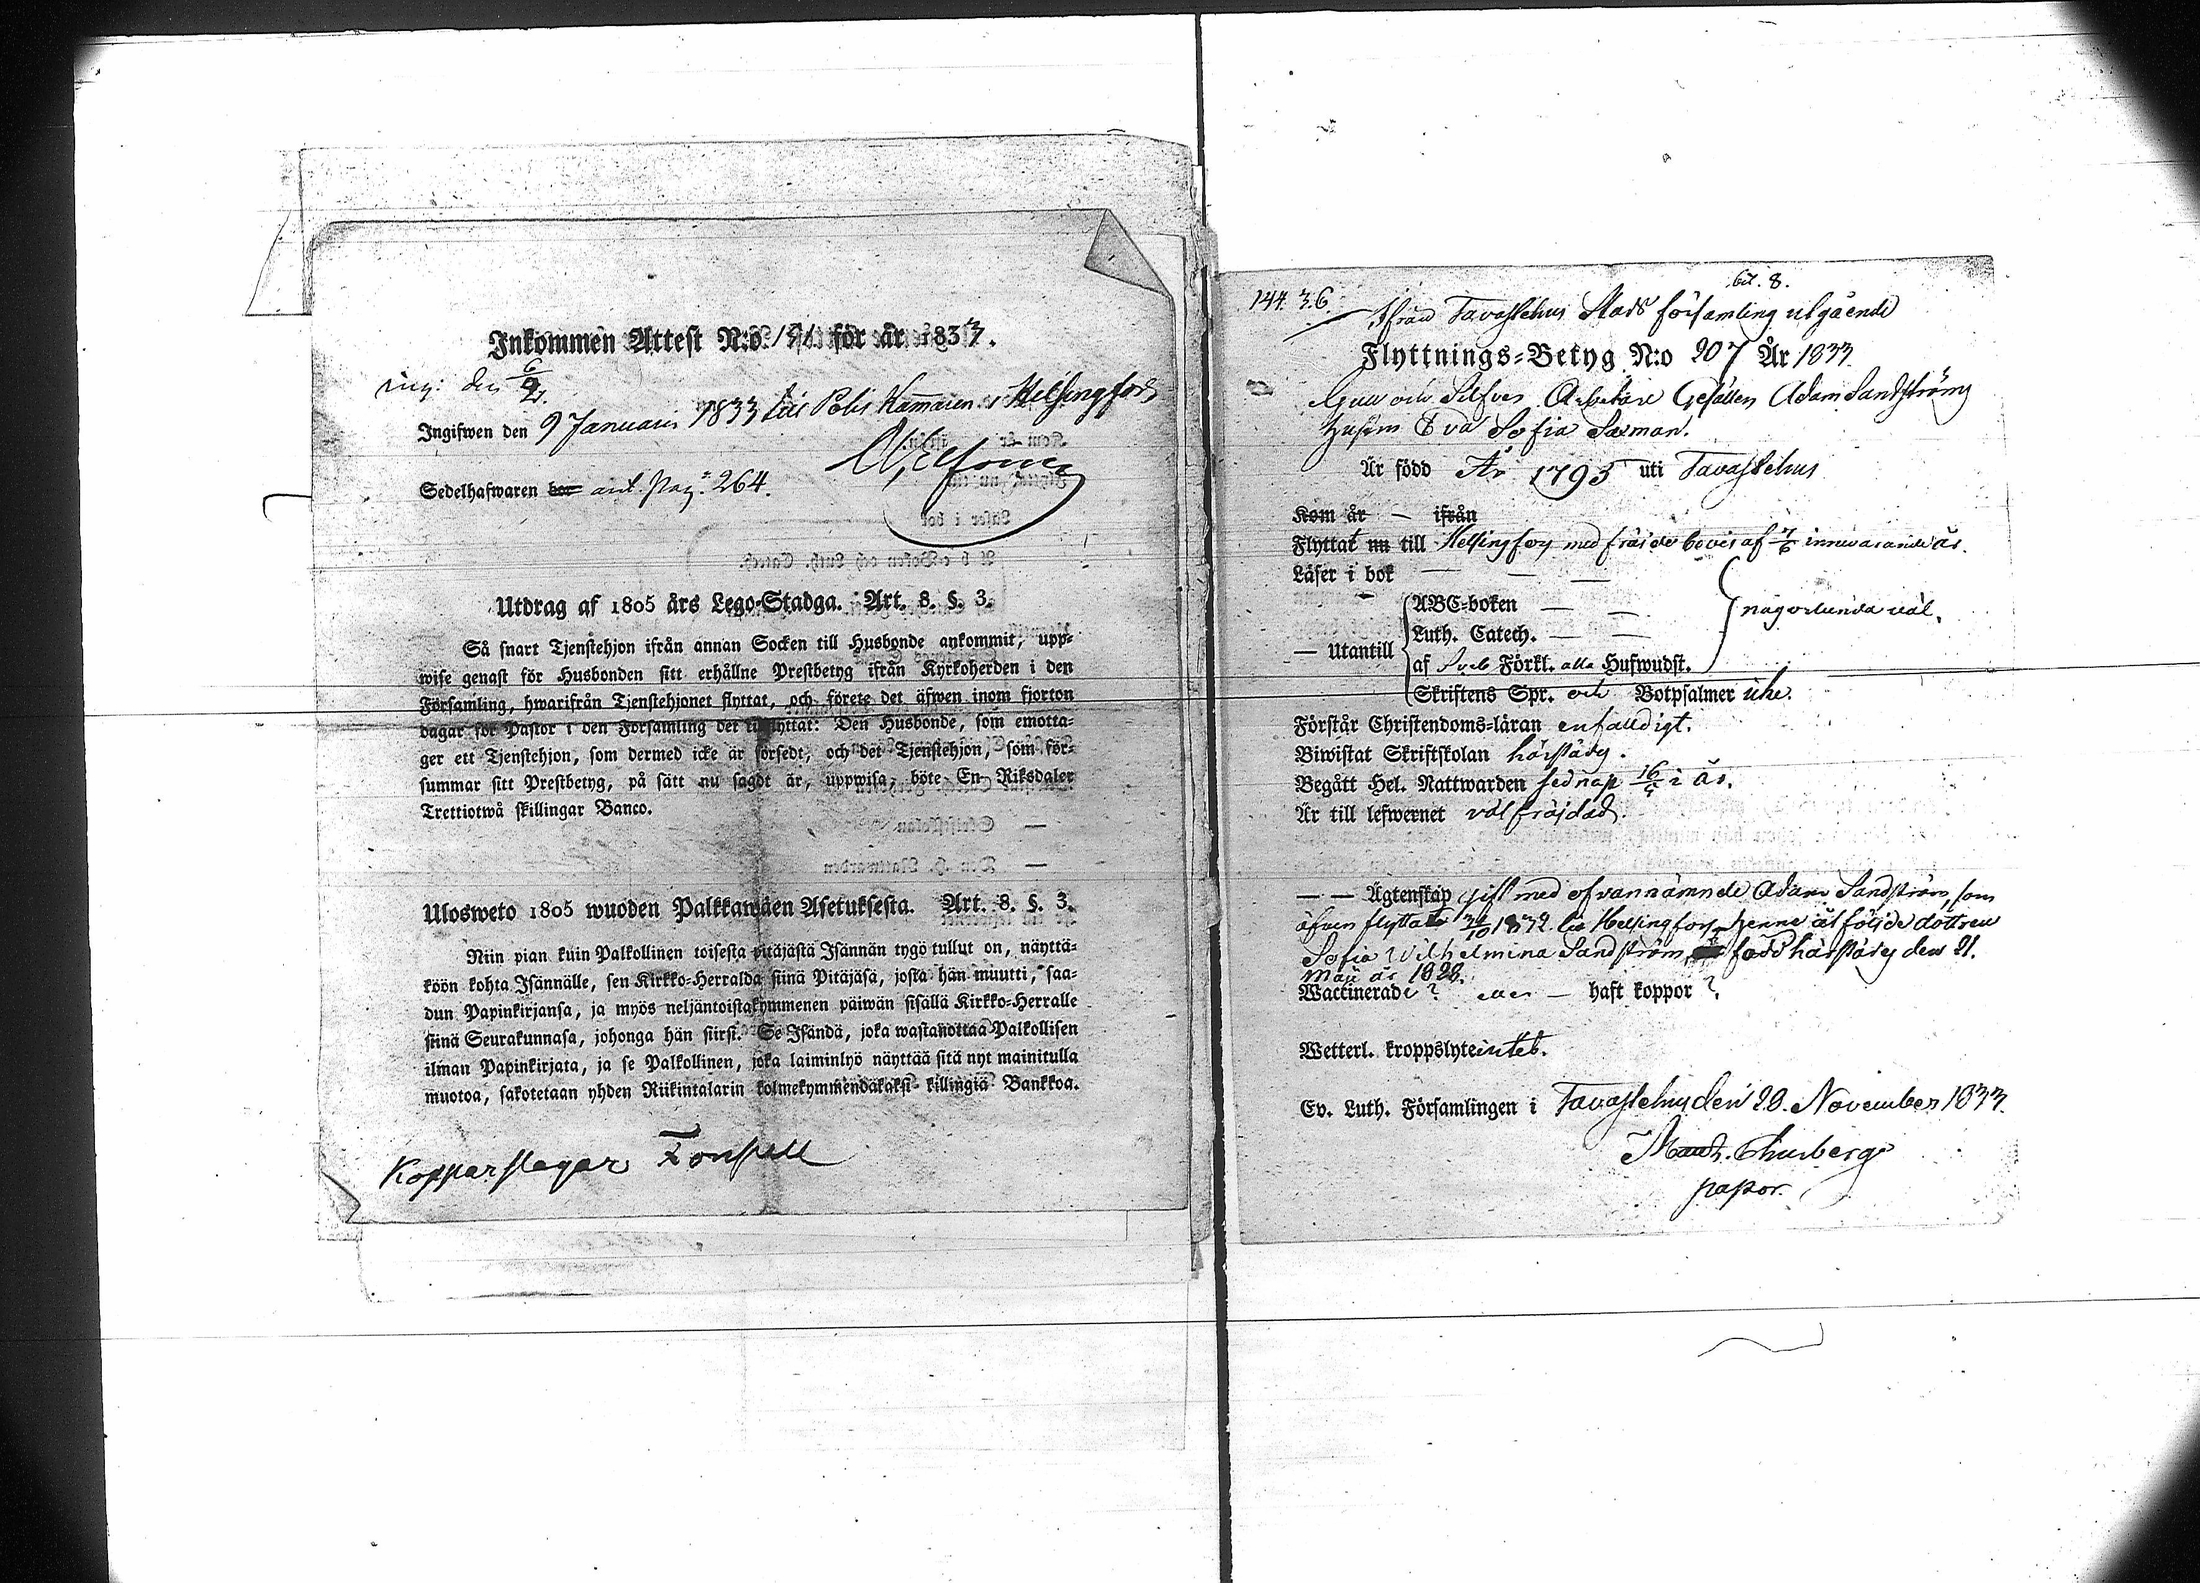 Inkommen Attest N:o för år 1833.
den 6/2
Ingifwen den 9 Januarii 1833 till Polis Kammaren i Helsingfors
Sedelhafwaren bor ant. Pag: 264.
Utdrag af 1805 års Lego-Stadga. Art. 8. §. 3.
Så snart Tjenstehjon ifrån annan Socken till Husbonde ankommit, upp-
wise genast för Husbonden sitt erhållne Prestbetyg ifrån Kyrkoherden i den
Församling, hwarifrån Tjenstehjonet flyttat, och förete det äfwen inom fjorton
dagar för Pastor i den Församling det tillflyttat: Den Husbonde, som emotta-
ger ett Tjenstehjon, som dermed icke är försedt, och det Tjenstehjon, som för-
summar sitt Prestbetyg, på sätt nu sagdt är, uppwisa, böte En Riksdaler
Trettiotwå skillingar Banco.
Ulosweto 1805 wuoden Palkkawäen Asetuksesta. Art. 8. §. 3.
Niin pian kuin Palkollinen toisesta pitäjästä Isännän tygö tullut on, näyttä-
köön kohta Isännälle, sen Kirkko-Herralda siinä Pitäjäsä, josta hän muutti, saa-
dun Papinkirjansa, ja myös neljäntoistakymmenen päiwän sisällä Kirkko-Herralle
siinä Seurakunnasa, johonga hän siirsi. Se Isändä, joka wastanottaa Palkollisen
ilman Papinkirjata, ja se Palkollinen, joka laiminlyö näyttää sitä nyt mainitulla
muotoa, sakotetaan yhden Riikintalarin kolmekymmendäkaksi killingiä Bankkoa.
Kopparslagar Forsell
144. 36. bil. 8.
Ifrån Tavastehus Stads församling utgående
Flyttnings-Betyg N:o 207 År 1833
Guld och Silfver Arbetare Gesällen Adam Sandströms
hustru Eva Sofia Saxman.
Är född År 1795 uti Tavastehus
Kom år — ifrån
Flyttat nu till Helsingfors med fräjde bevis af 7/6 innevarande år.
Läser i bok — — —
— Utantill ABC-boken — —
Luth. Catech. — — någorlunda väl.
af Sveb Förkl. alla Hufwudst.
Skriftens Spr. och Botpsalmer icke.
Förstår Christendoms-läran enfalldigt.
Biwistat Skriftskolan härstädes.
Begått Hel. Nattwarden sednast i år.
Är till lefwernet väl fräjdad.
— — Ägtenskap gift med ofvannämnde Adam Sandström, som
äfven flyttat 1832 till Helsingfors. henne åtföljde dottren
Sofia Wilhelmina Sandström, född härstädes den 21.
Maji år 1828.
Waccinerad? eller — haft koppor?
Wetterl. kroppslyte intet.
Ev. Luth. Församlingen i Tavastehus den 28. November 1833.
Thurberg
pastor.